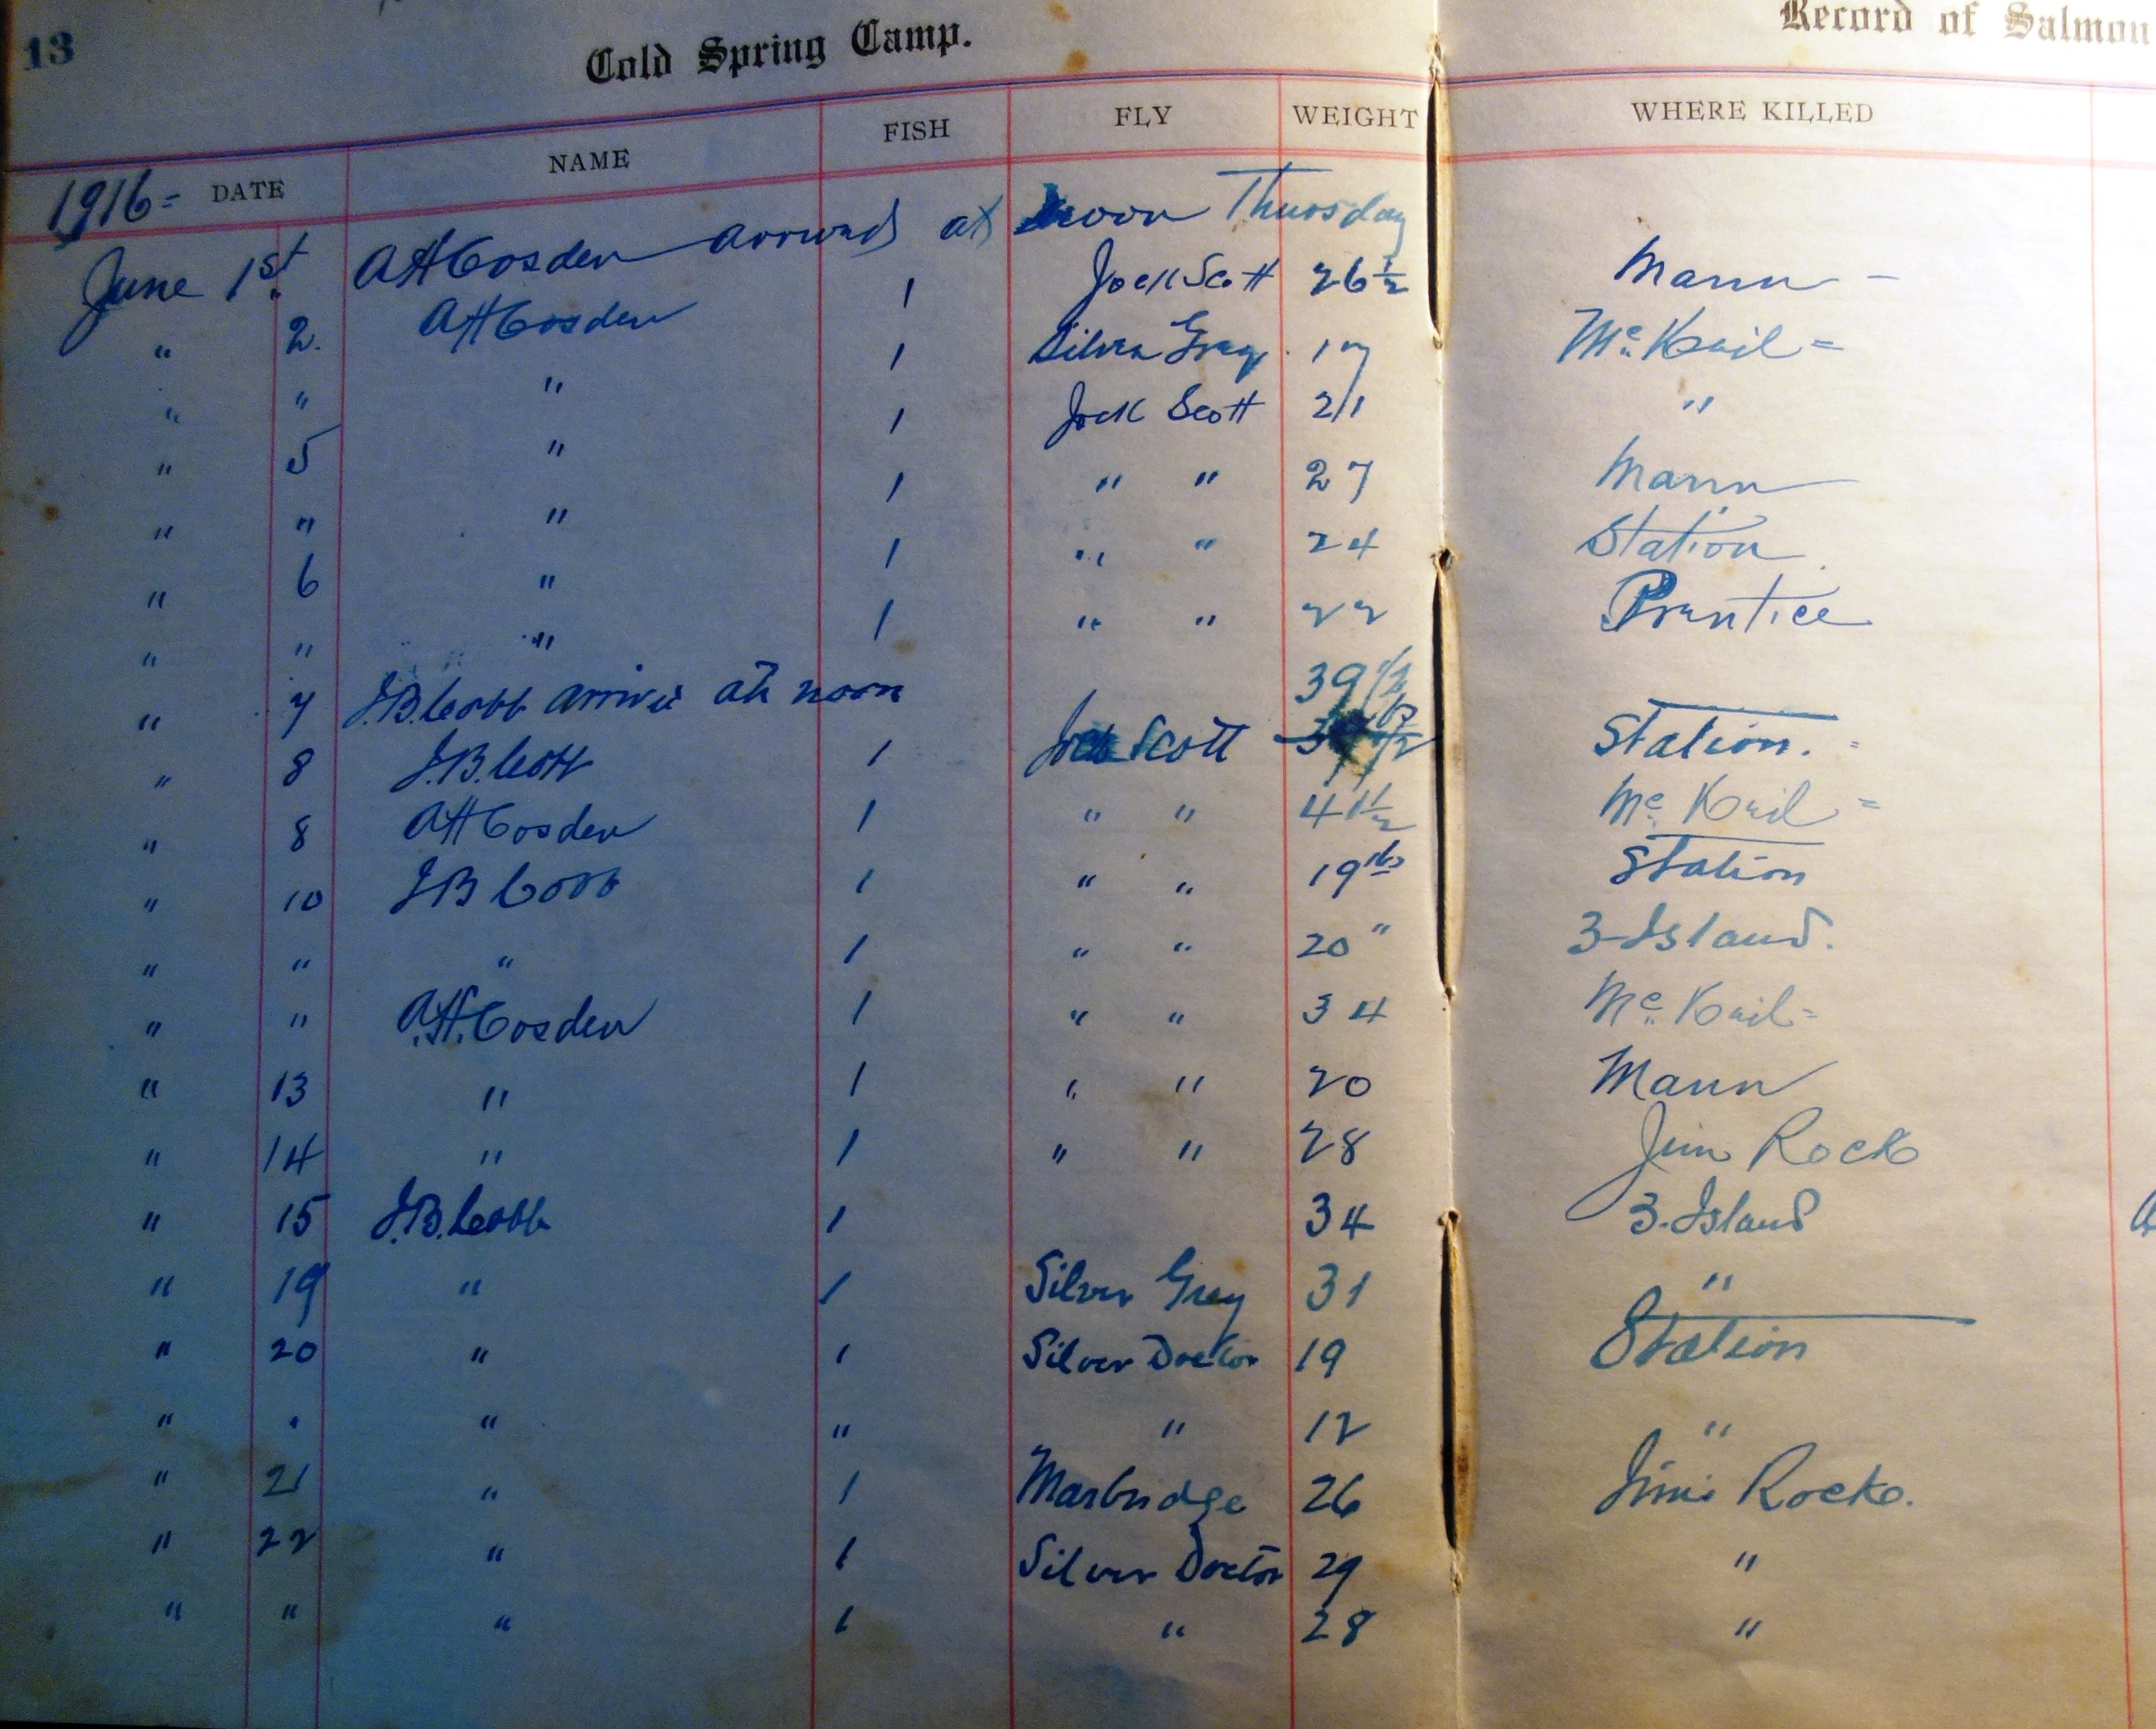 13 Cold Spring Camp. Record of Salmon
DATE NAME FISH FLY WEIGHT WHERE KILLED
1916=
June 1st. A H Cosden arrived at noon Thursday
" 2. A H Cosden 1 Jock Scott 26 1/2 Mann -
" " " 1 Silver Gray 17 Mc. Kail =
" 5 " 1 Jock Scott 21 "
" " " 1 " " 27 Mann
" 6 " 1 " " 24 Station
" " " 1 " " 22 Prentice
" 7 J.B. Cobb arrived at noon
39 1/2
" 8 J.B. Cobb 1 Jock Scott Station.
" 8 A H Cosden 1 " " 41 1/2 Mc Kail =
" 10 J B Cobb 1 " " 19 lbs Station
" " " 1 " " 20 " 3-Island.
" " A.H. Cosden 1 " " 34 Mc. Kail =
" 13 " 1 " " 20 Mann
" 14 " 1 " " 28 Jim Rock
" 15 J.B. Cobb 1 34 3. Island
" 19 " 1 Silver Grey 31 "
" 20 " 1 Silver Doctor 19 Station
" " " " " 12 "
" 21 " 1 Marbridge 26 Jims Rock.
" 22 " 1 Silver Doctor 29 "
" " " 1 " 28 "